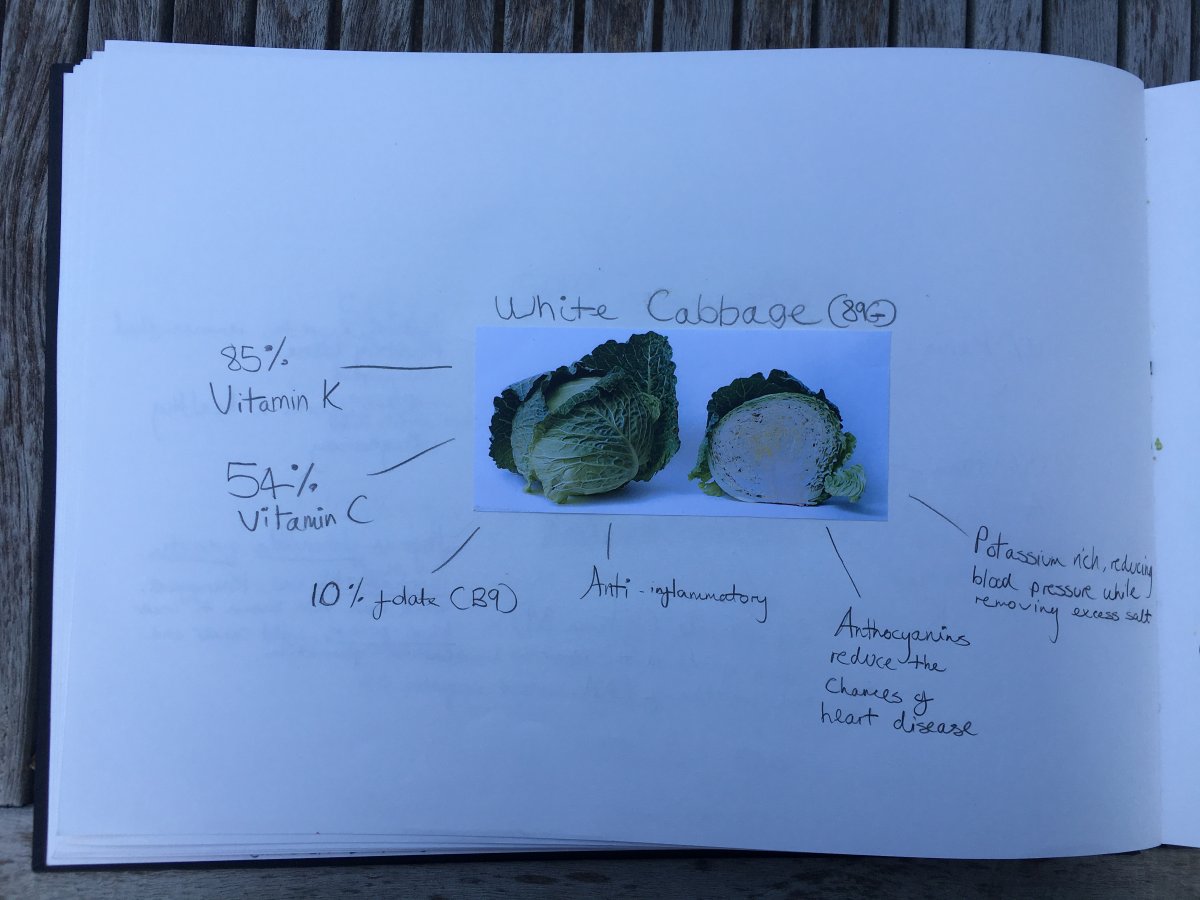 White Cabbage (89G)
85%
Vitamin K
54%
Vitamin C
10% folate (B9)
Anti-inflammatory
Anthocyanins
reduce the
Chances of
heart disease
Potassium rich, reducing
blood pressure while
removing excess salt